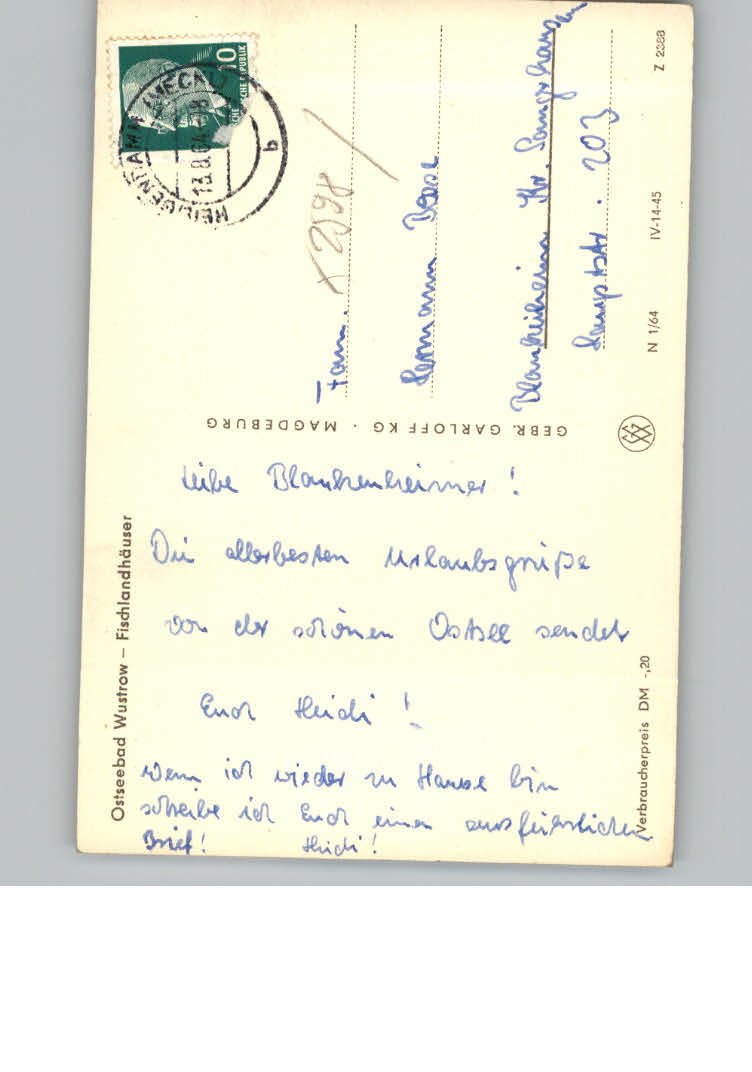 Ostseebad Wustrow – Fischlandhäuser
Leibe Blankenheimer!
Die allerbesten Urlaubsgrüße
von der schönen Ostsee sendet
Euch Heidi!
Wenn ich wieder zu Hause bin
schreibe ich Euch einen ausführlichen
Brief! Heidi!
Verbraucherpreis DM -,20
GEBR. GARLOFF KG · MAGDEBURG
10
HEILIGENDAMM (MECKL)
13.8.64
b
Fam.
Hermann
Blankenheim Kr. Sangerhausen
Hauptstr. 203
N 1/64 IV-14-45 Z 2388